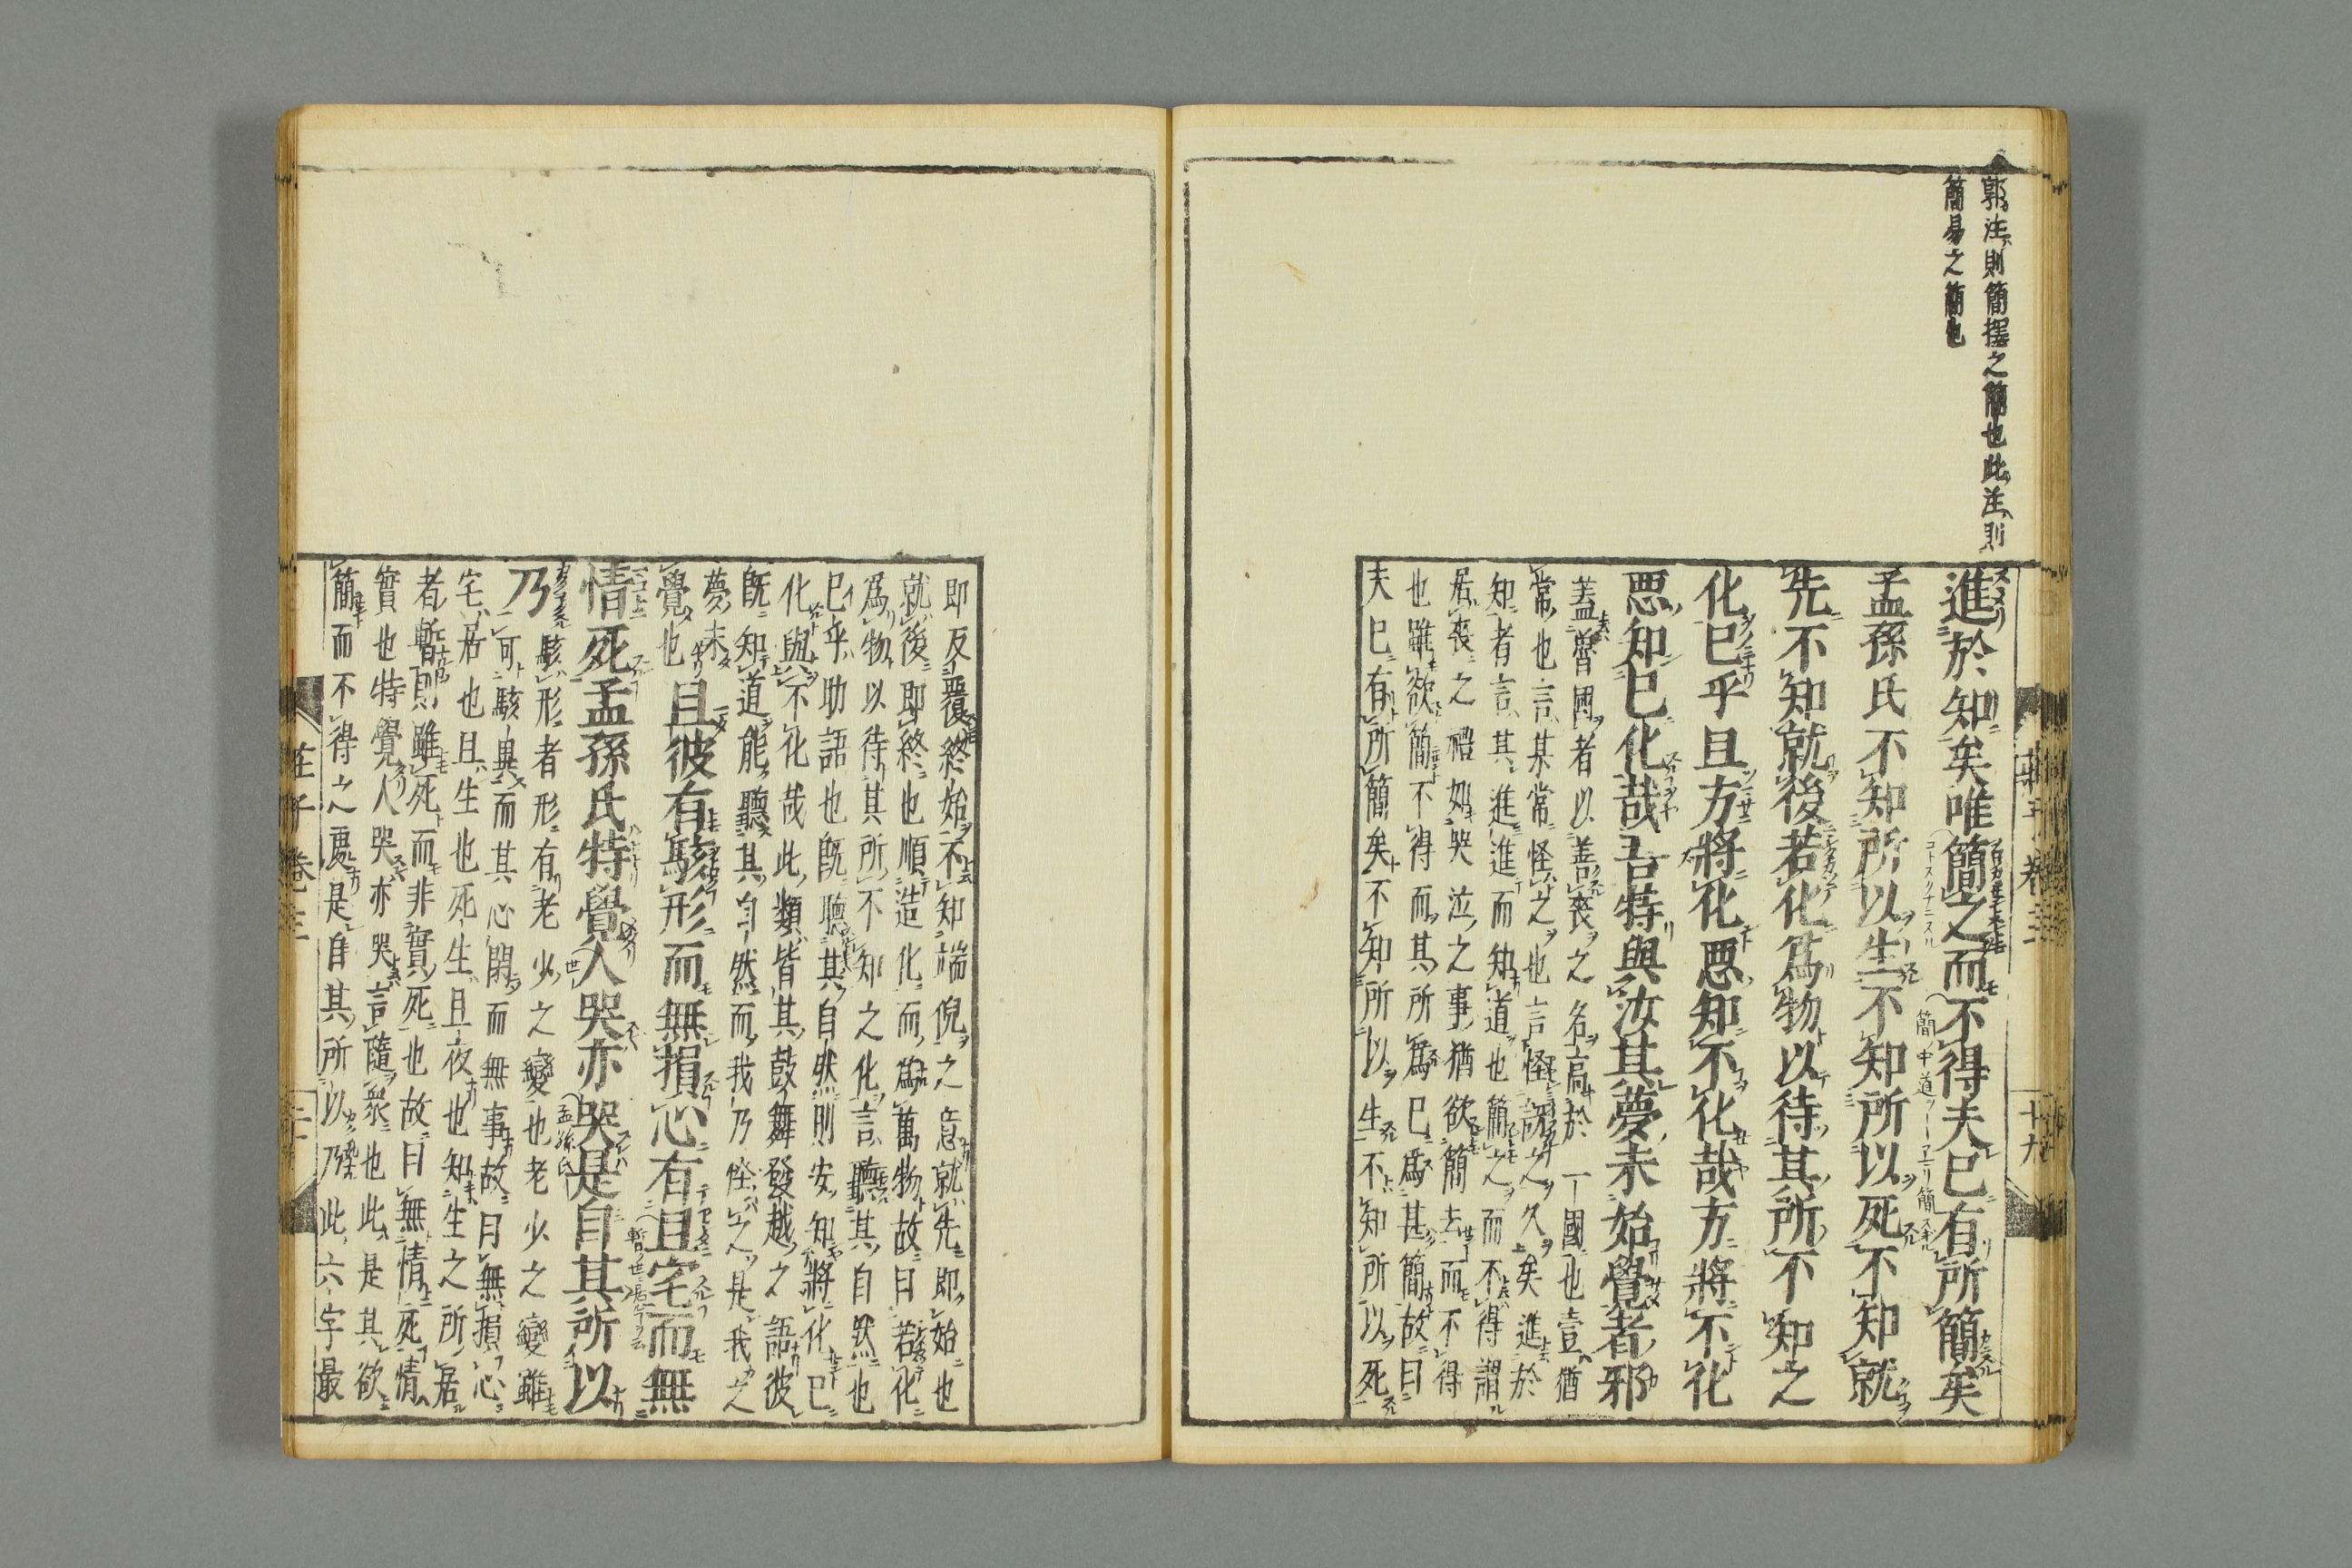 郭注則簡擇之簡也此注則
簡易之簡也
進於知矣唯簡之而不得夫已有所簡矣
孟孫氏不知所以生不知所以死不知就
先不知就後若化爲物以待其所不知之
化已乎且方將化惡知不化哉方將不化
惡知已化哉吾特與汝其夢未始覺者邪
蓋魯國者以善喪之名高於一國也壹猶
常也言某常怪之也言怪訝之久矣進於
知者言其進進而知道也簡之而不得謂
居喪之禮如哭泣之事猶欲簡去而不得
也雖欲簡不得而其所爲已爲甚簡故曰
夫已有所簡矣不知所以生不知所以死
莊子 卷三
十九
即反覆終始不知端倪之意就先即始也
就後即終也順造化而爲萬物故曰若化
爲物以待其所不知之化言聽其自然也
已乎助語也旣聽其自然則安知將化已
化與不化哉此類皆其鼓舞發越之語彼
旣知道能聽其自然而我乃怪之是我之
夢未
覺也且彼有駭形而無損心有且宅而無
情死孟孫氏特覺人哭亦哭是自其所以
乃駭形者形有老少之變也老少之變雖
可駭異而其心閑而無事故曰無損心
宅居也且生也死生且夜也知生之所居
者暫則雖死而非實死也故曰無情死情
實也特覺人哭亦哭言隨衆也此是其欲
簡而不得之處是自其所以乃此六字最
莊子 卷三
二十